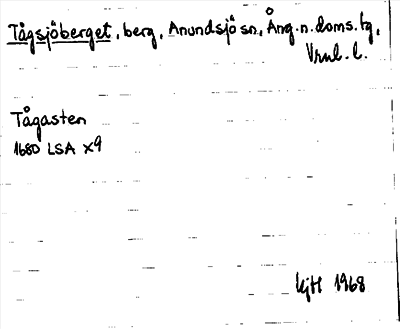 Tågsjöberget, berg, Anundsjö sn, Ång.n.doms.tg,
Vrnl. l.
Tågasten
1680 LSA X9
HjH 1968